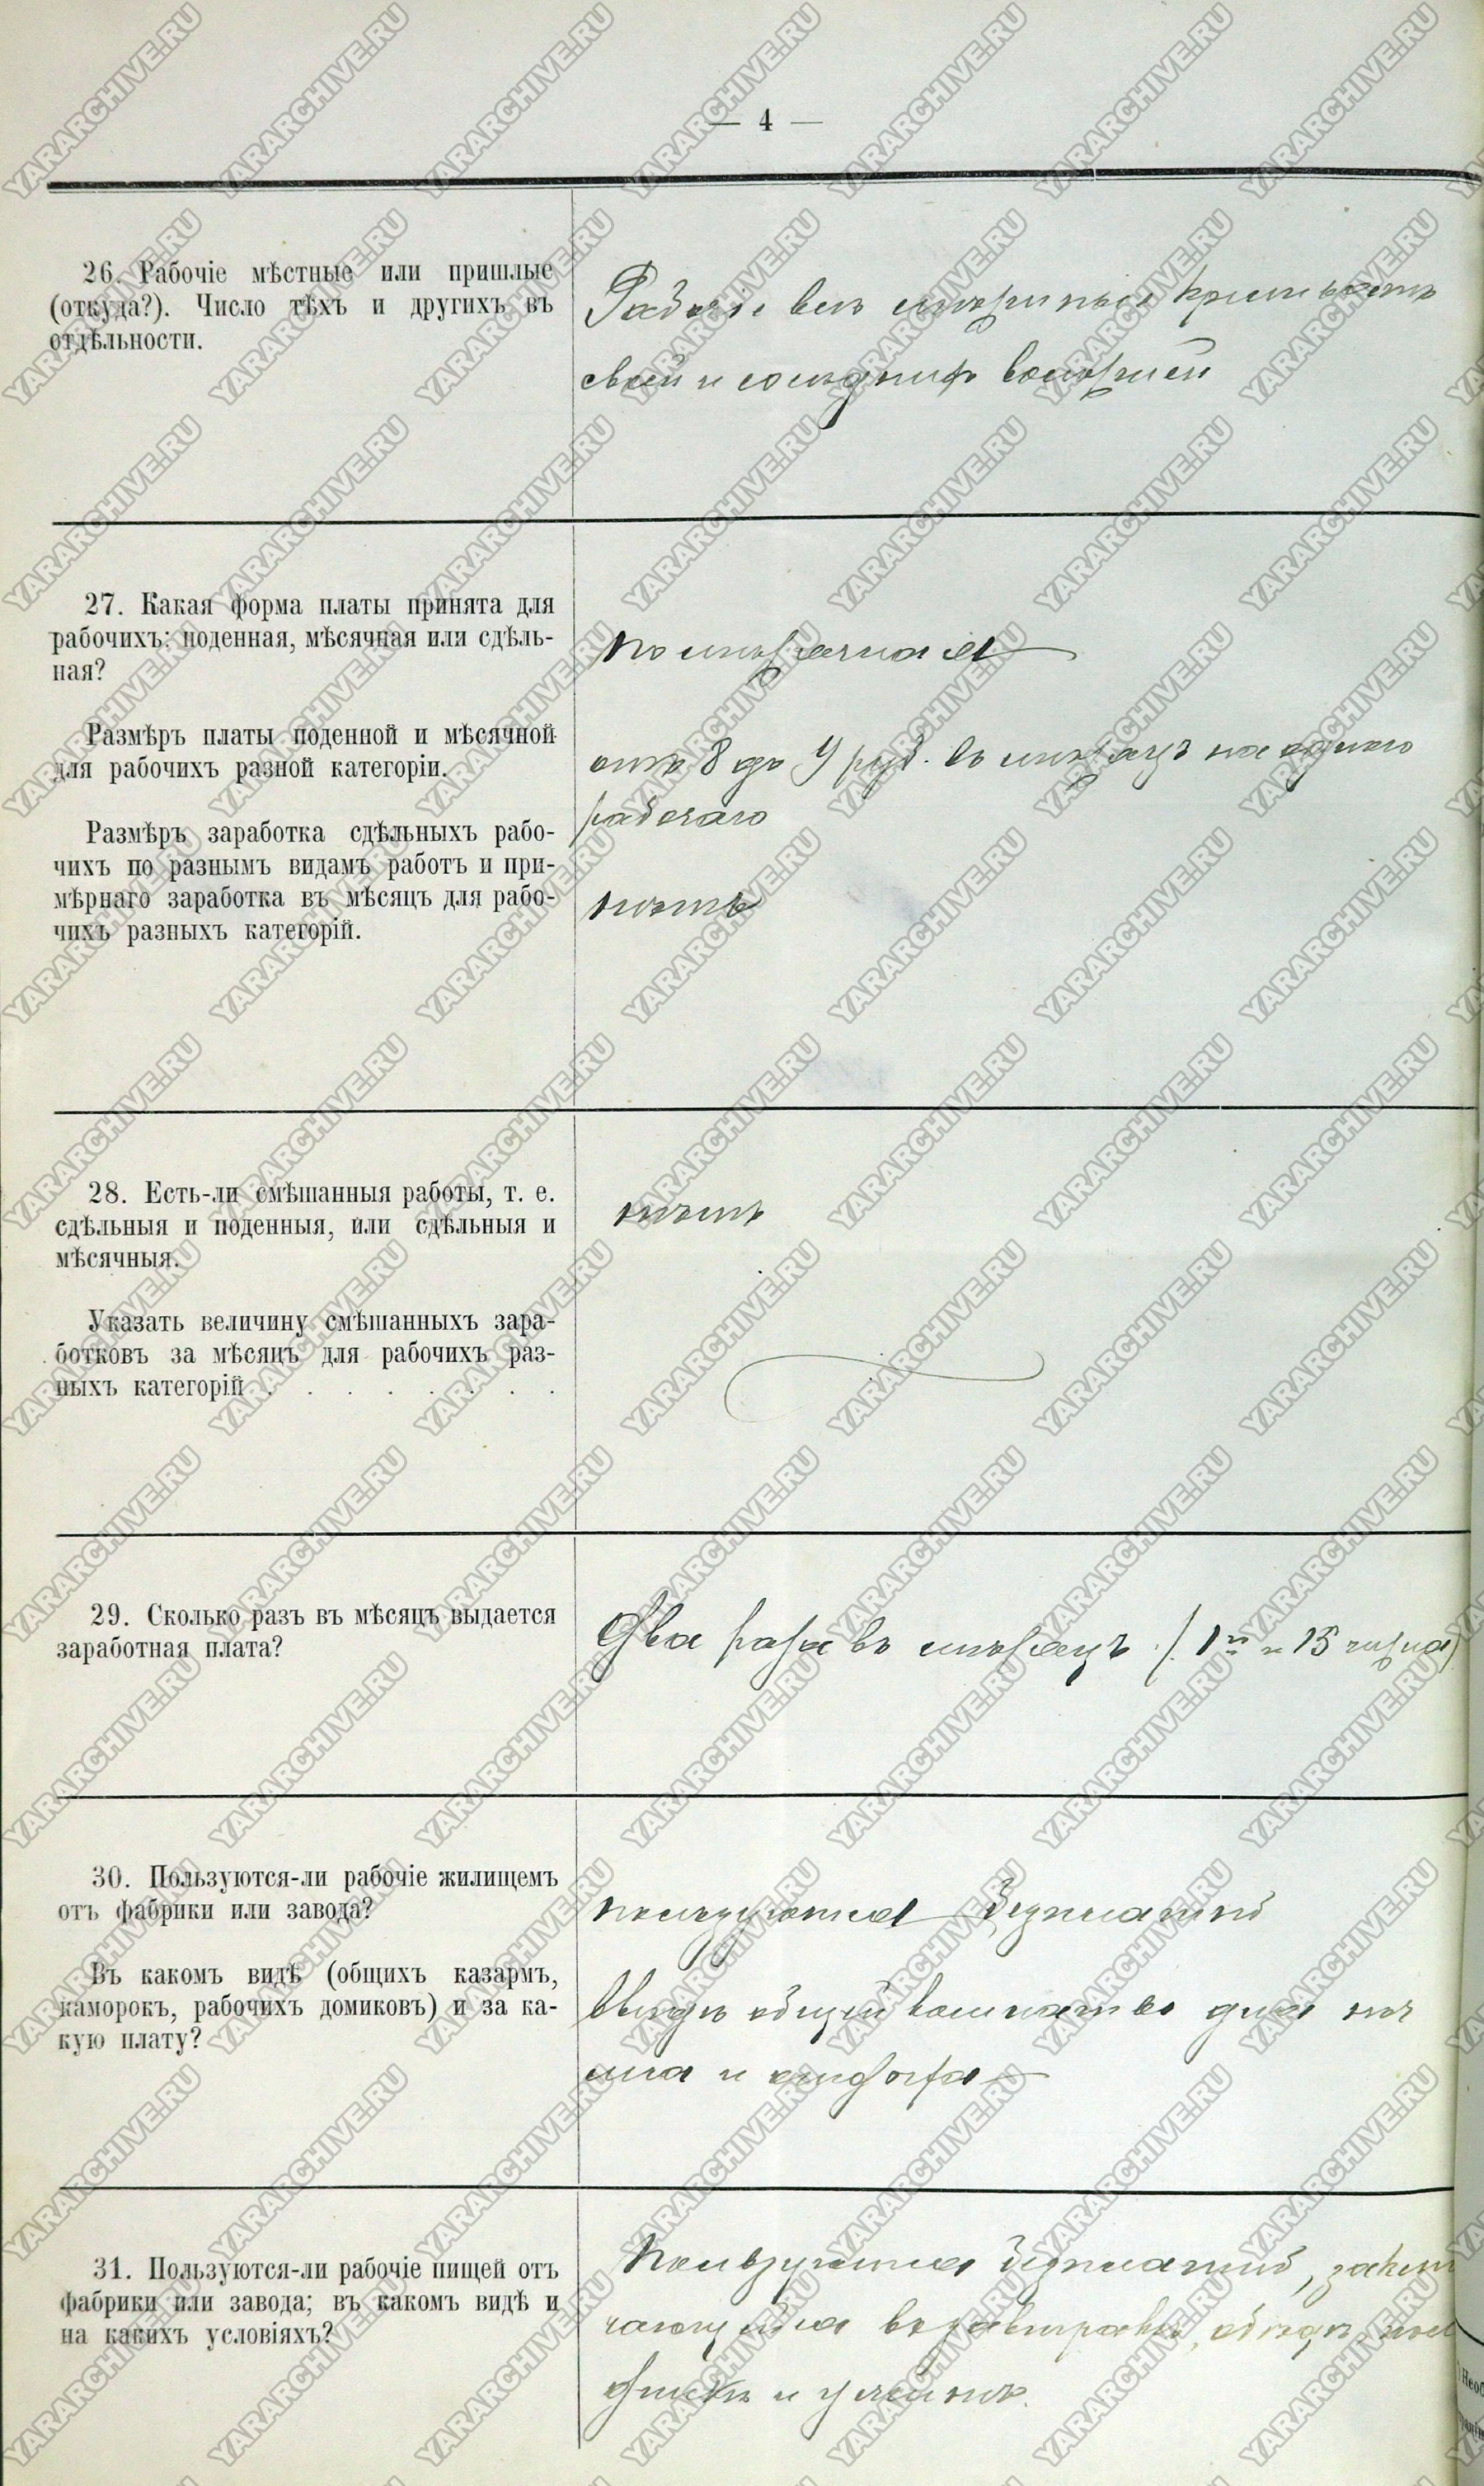 — 4 —
26. Рабочіе мѣстные или пришлые
(откуда?). Число тѣхъ и другихъ въ
отдѣльности.
Рабочіе всѣ мѣстные крестьяне
своей и сосѣднихъ волостей
27. Какая форма платы принята для
рабочихъ: поденная, мѣсячная или сдѣль-
ная?
помѣсячная
Размѣръ платы поденной и мѣсячной
для рабочихъ разной категоріи.
отъ 8 до 9 руб. въ мѣсяцъ на одного
рабочаго
Размѣръ заработка сдѣльныхъ рабо-
чихъ по разнымъ видамъ работъ и при-
мѣрнаго заработка въ мѣсяцъ для рабо-
чихъ разныхъ категорій.
нѣтъ
28. Есть-ли смѣшанныя работы, т. е.
сдѣльныя и поденныя, или сдѣльныя и
мѣсячныя.
нѣтъ
Указать величину смѣшанныхъ зара-
ботковъ за мѣсяцъ для рабочихъ раз-
ныхъ категорій . . . . . . . .
29. Сколько разъ въ мѣсяцъ выдается
заработная плата?
Два раза въ мѣсяцъ (1го и 15 числа)
30. Пользуются-ли рабочіе жилищемъ
отъ фабрики или завода?
пользуются безплатно
Въ какомъ видѣ (общихъ казармъ,
каморокъ, рабочихъ домиковъ) и за ка-
кую плату?
ввидѣ общей комнаты для
и
31. Пользуются-ли рабочіе пищей отъ
фабрики или завода; въ какомъ видѣ и
на какихъ условіяхъ?
Пользуются безплатно, заклю
чающейся въ завтракѣ, обѣдѣ,
и ужинѣ.
YARARCHIVE.RU